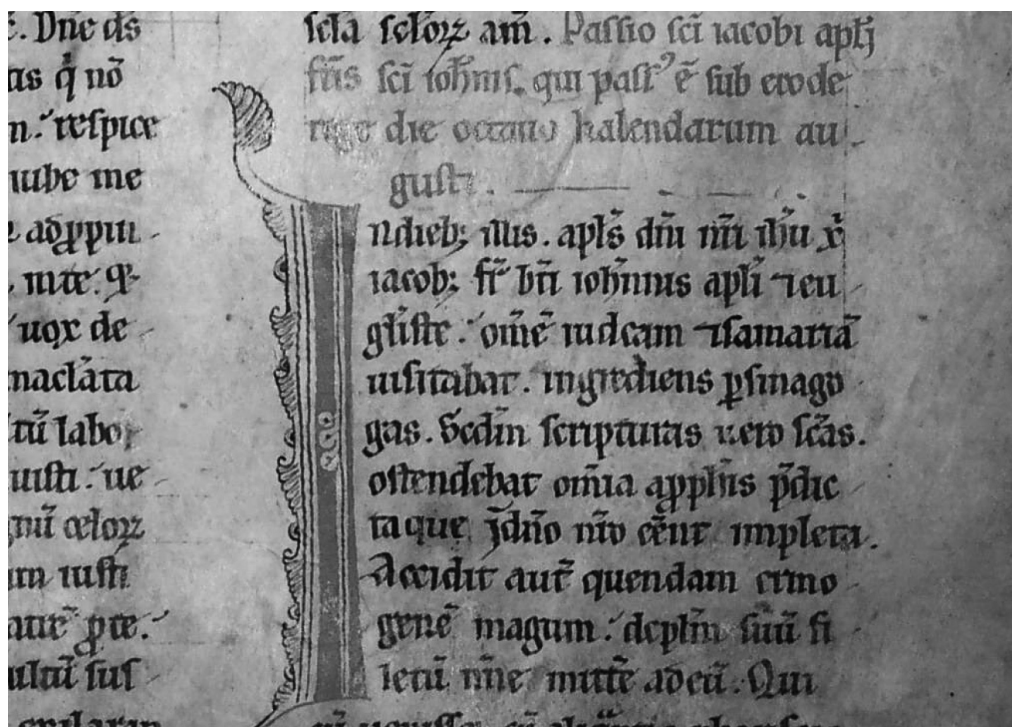 Dn̄e ds̄
q̄ nō
respice
iube me
ad ꝓpin
uox de
tū labor
uisti : ue
celoꝝ
iusti
ꝓ te.
sus
scl̄a scl̄oꝝ am̄. Passio scī iacobi apl̄i
fr̄is scī ioh̄nis. qui pass᾽ ē sub erode
rege die octauo kalendarum au-
gusti.
In dieb; illis. apl̄s dn̄i nr̄i ih̄u xp̄i
iacob; fr̄ bt̄i ioh̄nnis apl̄i ⁊ eu
gl̄iste : om̄ē iudeam ⁊ samariā
uisitabat. ingrediens ꝑ sinago
gas. Sedm̄ scripturas uero scās.
ostendebat om̄ia a ꝓph̄is p̄dic
ta que ī dn̄o nr̄o eēnt impleta.
Accidit aut̄ quendam ermo
genē magum : discipl̄m suū fi
letū n̄ne mittē ad eū. Qui